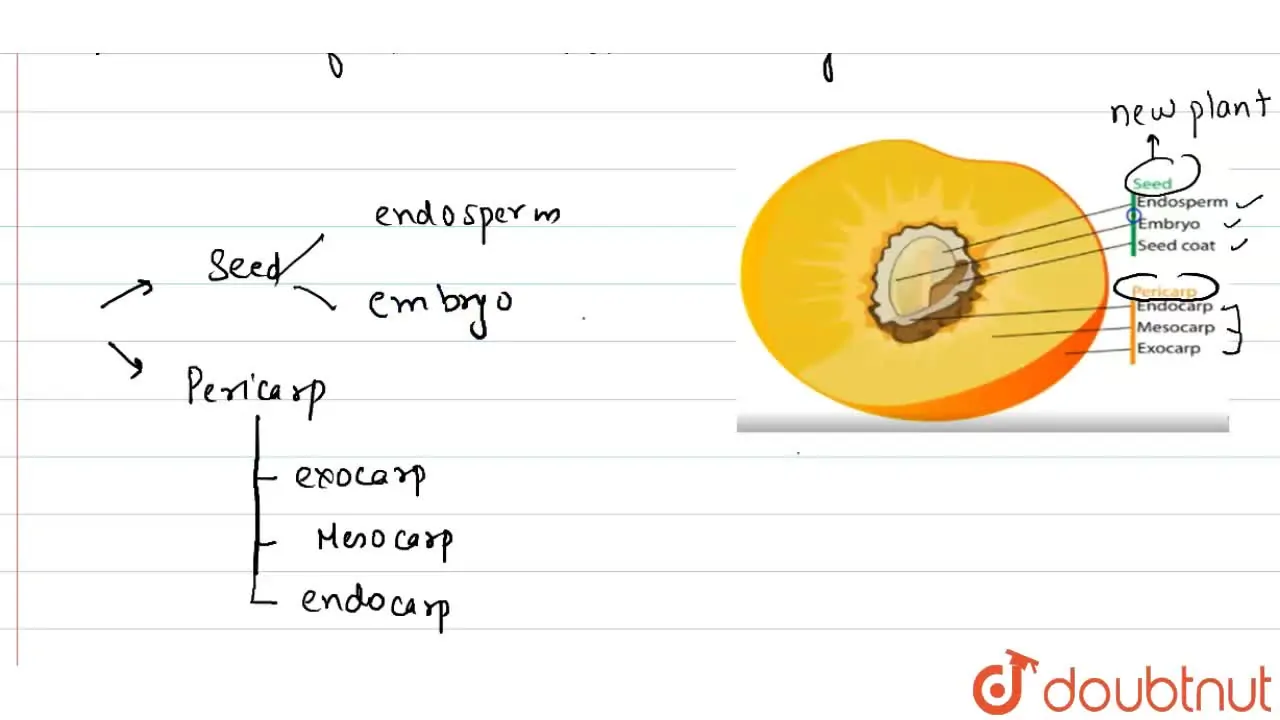 new plant
Seed
Endosperm
Embryo
Seed coat
Pericarp
Endocarp
Mesocarp
Exocarp
Seed
endosperm
embryo
Pericarp
exocarp
Mesocarp
endocarp
doubtnut